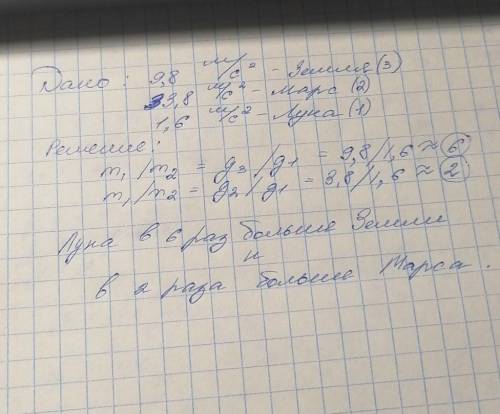 Дано: 9,8 м/с² - Земля (3)
3,8 м/с² - Марс (2)
1,6 м/с² - Луна (1)
Решение:
m₁/m₂ = g₃/g₁ = 9,8/1,6 ≈ 6
m₁/m₂ = g₂/g₁ = 3,8/1,6 ≈ 2
Луна в 6 раз больше Земли
и
в 2 раза больше Марса.